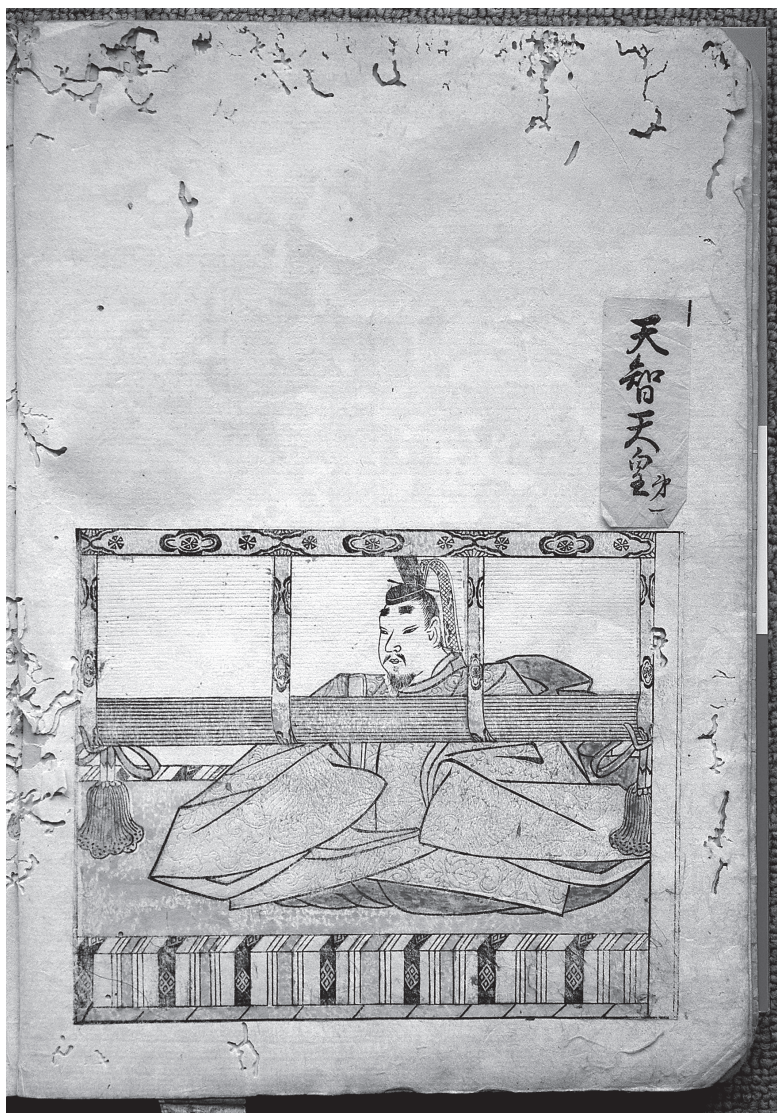 天智天皇 㐧一